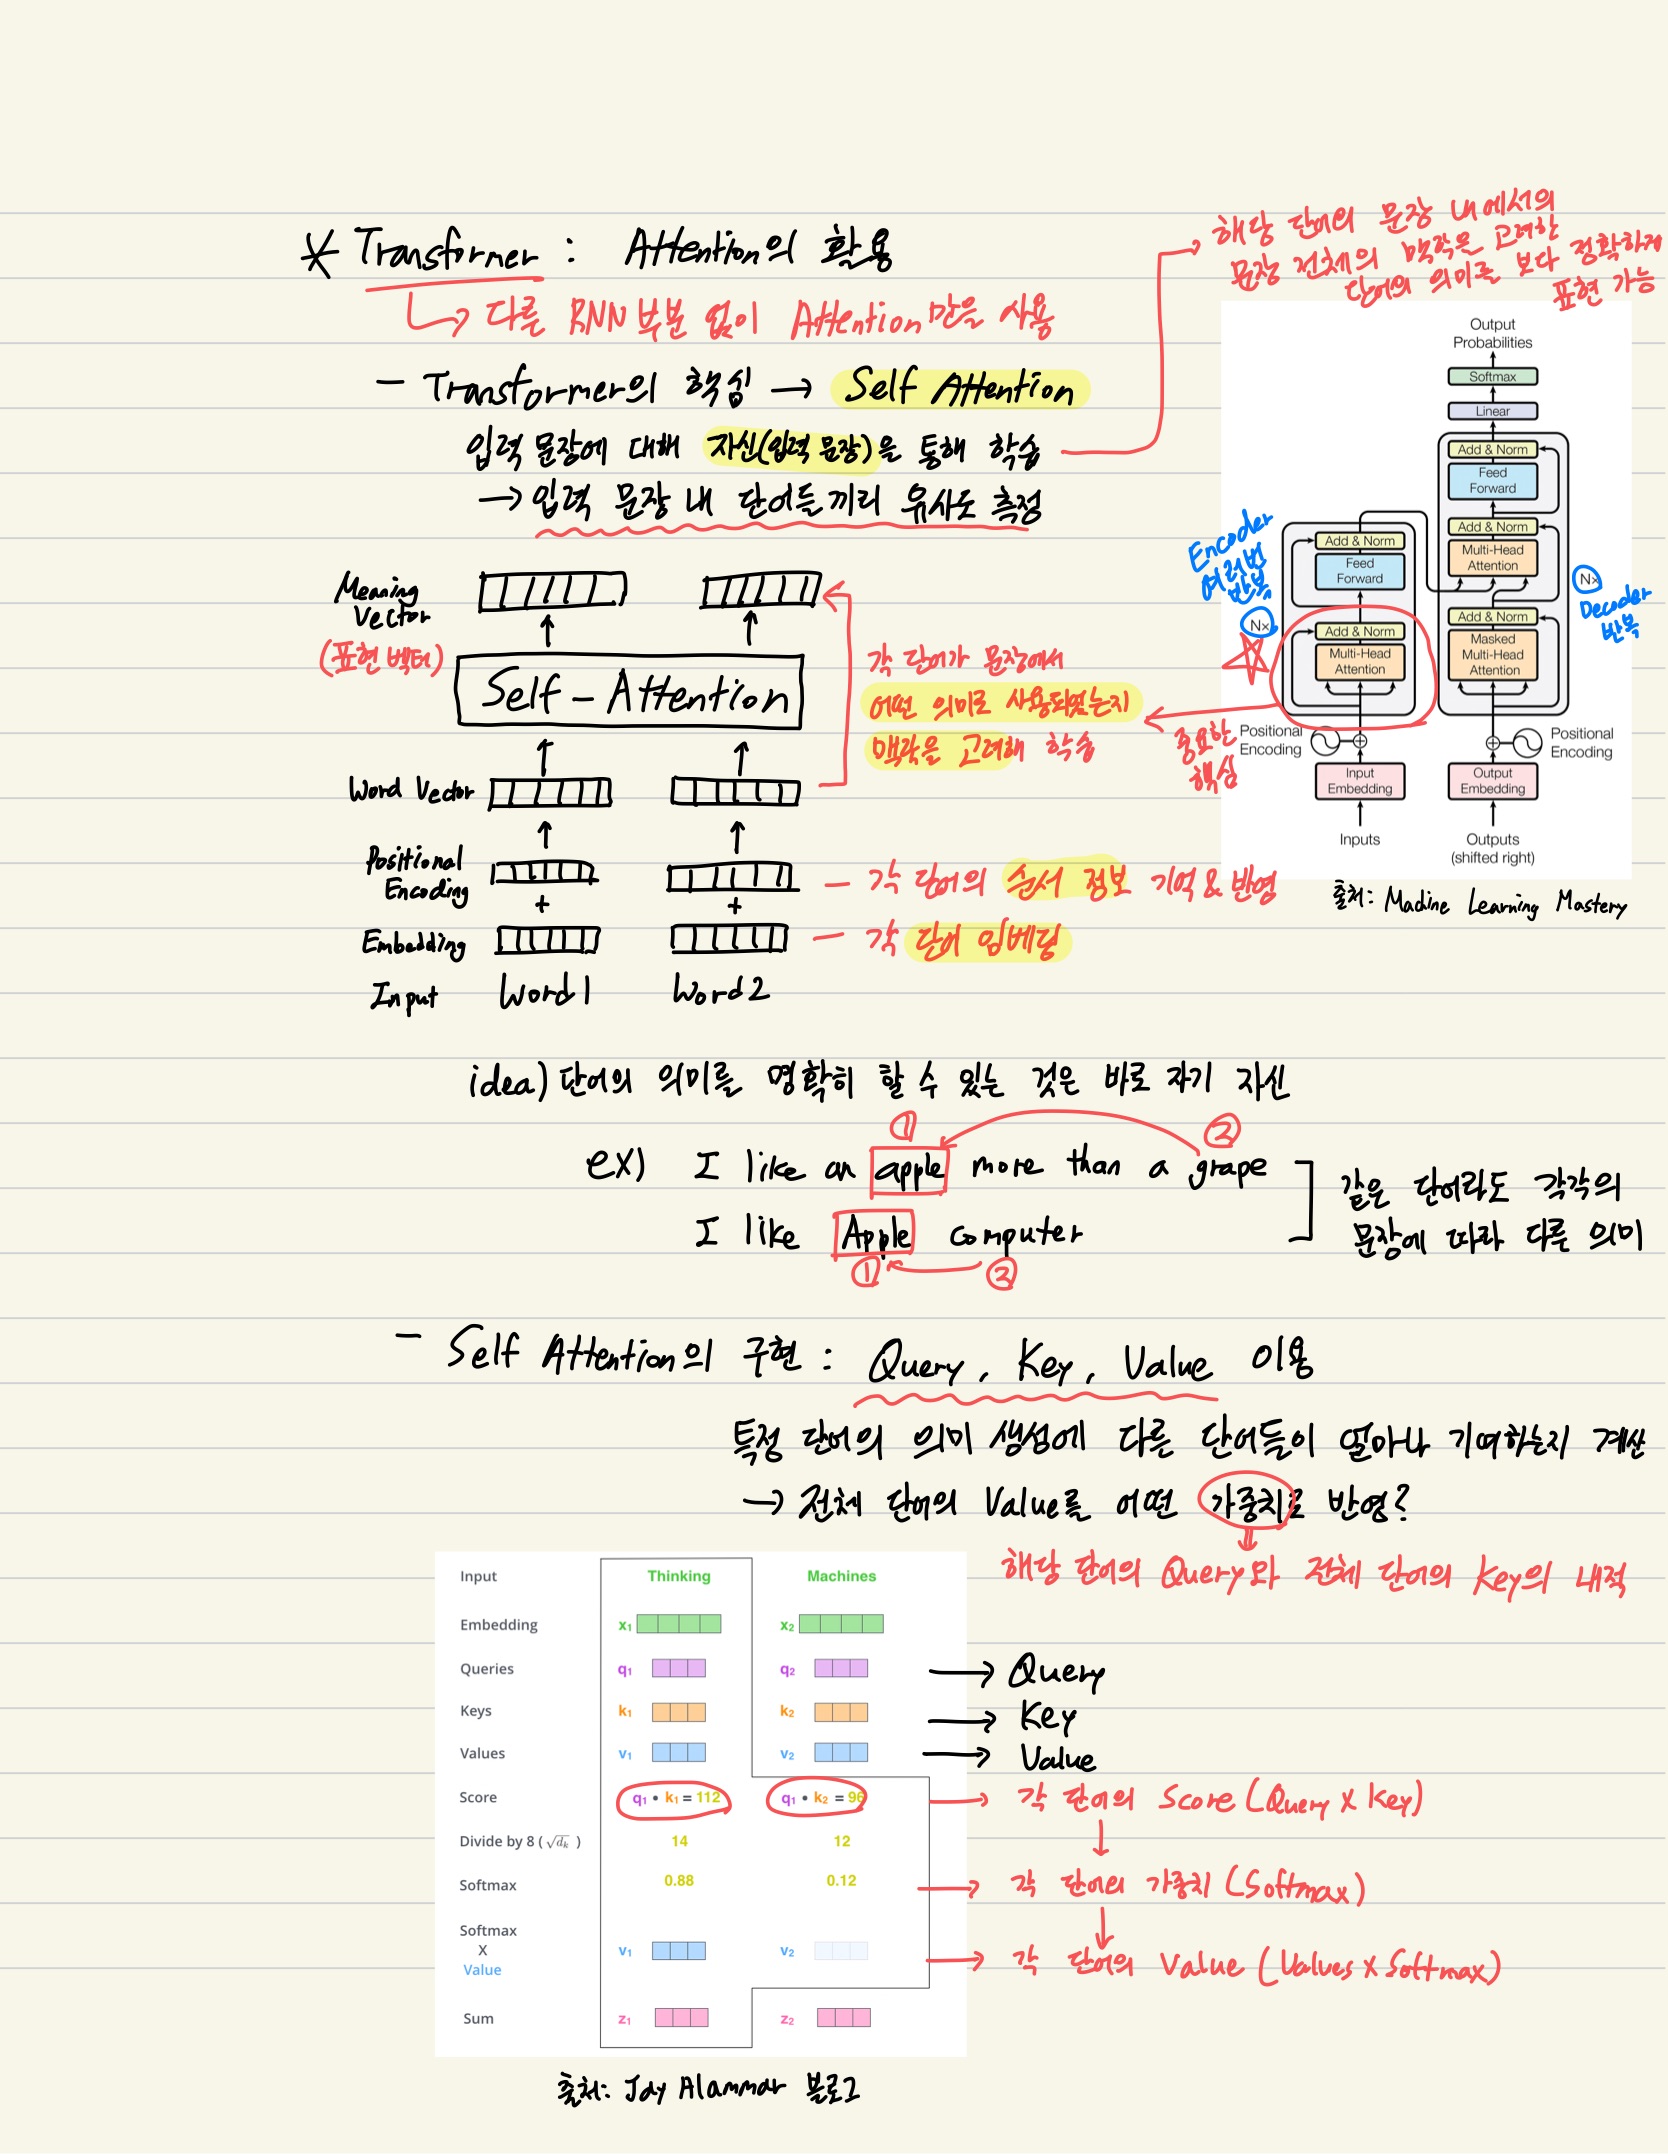 * Transformer : Attention의 활용
↳ 다른 RNN 부분 없이 Attention 만을 사용
- Transformer의 핵심 → Self Attention
입력 문장에 대해 자신(입력 문장)을 통해 학습
→ 입력 문장 내 단어들끼리 유사도 측정
해당 단어의 문장 내에서의
문장 전체의 맥락을 고려한
단어의 의미를 보다 정확하게
표현 가능
Meaning
Vector
(표현 벡터)
Self-Attention
Word Vector
Positional
Encoding
+ +
Embedding
Input Word1 Word2
각 단어가 문장에서
어떤 의미로 사용되었는지
맥락을 고려해 학습
- 각 단어의 순서 정보 기억 & 반영
- 각 단어 임베딩
Output
Probabilities
Softmax
Linear
Add & Norm
Feed
Forward
Add & Norm
Multi-Head
Attention
Add & Norm
Masked
Multi-Head
Attention
Nx
Decoder
반복
Encoder
여러번
반복
Nx
Add & Norm
Feed
Forward
Add & Norm
Multi-Head
Attention
중요한
핵심
Positional
Encoding
Positional
Encoding
Input
Embedding
Output
Embedding
Inputs
Outputs
(shifted right)
출처: Machine Learning Mastery
idea) 단어의 의미를 명확히 할 수 있는 것은 바로 자기 자신
① ②
ex) I like an apple more than a grape
I like Apple computer
① ②
같은 단어라도 각각의
문장에 따라 다른 의미
- Self Attention의 구현 : Query, Key, Value 이용
특정 단어의 의미 생성에 다른 단어들이 얼마나 기여하는지 계산
→ 전체 단어의 Value를 어떤 가중치로 반영?
해당 단어의 Query와 전체 단어의 Key의 내적
Input Thinking Machines
Embedding x1 x2
Queries q1 q2 → Query
Keys k1 k2 → Key
Values v1 v2 → Value
Score q1 • k1 = 112 q1 • k2 = 96 → 각 단어의 Score (Query x Key)
Divide by 8 ( √dk ) 14 12
Softmax 0.88 0.12 → 각 단어의 가중치 (Softmax)
Softmax
X
Value v1 v2 → 각 단어의 Value (Values x Softmax)
Sum z1 z2
출처: Jay Alammar 블로그